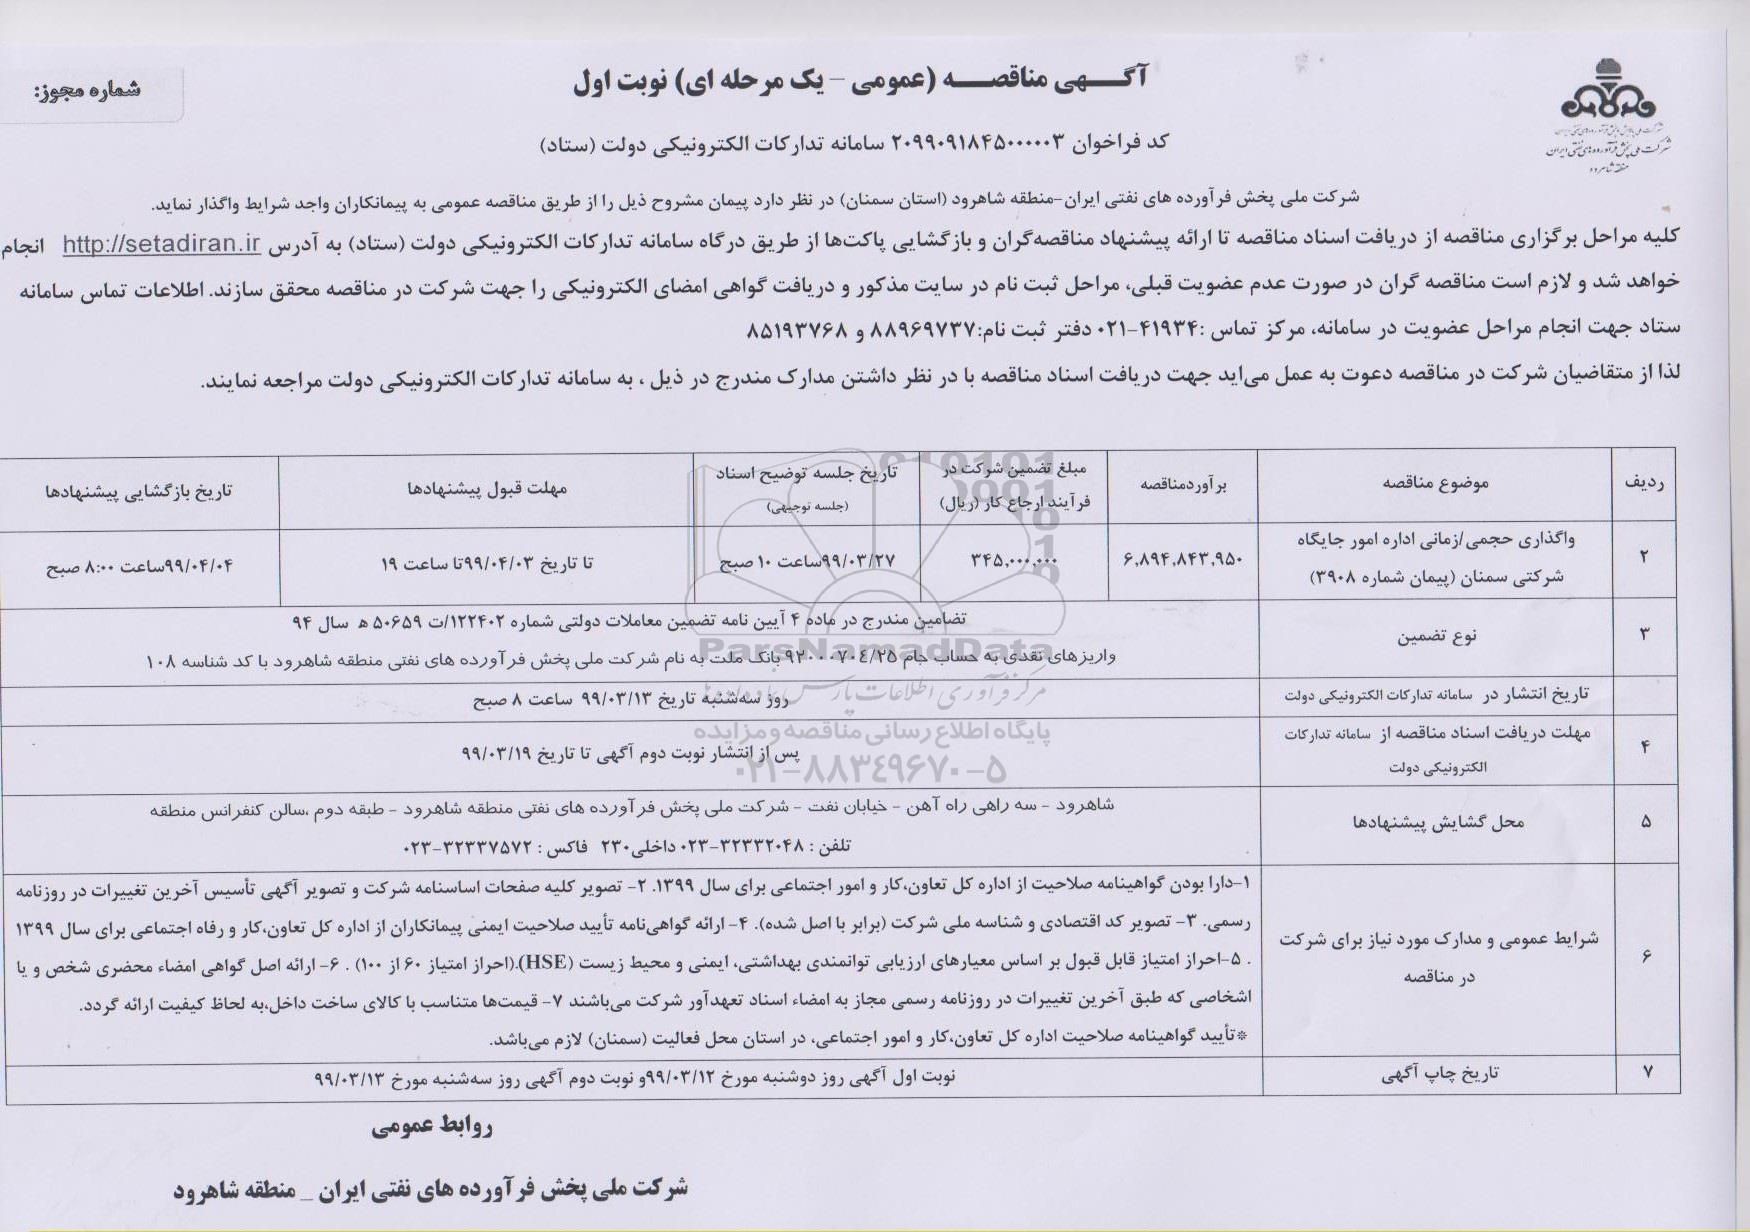 آگهی مناقصه (عمومی – یک مرحله ای) نوبت اول
شماره مجوز:
کد فراخوان ۲۰۹۹۰۹۱۸۴۵۰۰۰۰۰۳ سامانه تدارکات الکترونیکی دولت (ستاد)
شرکت ملی پخش فرآورده های نفتی ایران
منطقه شاهرود
شرکت ملی پخش فرآورده های نفتی ایران-منطقه شاهرود (استان سمنان) در نظر دارد پیمان مشروح ذیل را از طریق مناقصه عمومی به پیمانکاران واجد شرایط واگذار نماید.
کلیه مراحل برگزاری مناقصه از دریافت اسناد مناقصه تا ارائه پیشنهاد مناقصه‌گران و بازگشایی پاکت‌ها از طریق درگاه سامانه تدارکات الکترونیکی دولت (ستاد) به آدرس http://setadiran.ir انجام
خواهد شد و لازم است مناقصه گران در صورت عدم عضویت قبلی، مراحل ثبت نام در سایت مذکور و دریافت گواهی امضای الکترونیکی را جهت شرکت در مناقصه محقق سازند. اطلاعات تماس سامانه
ستاد جهت انجام مراحل عضویت در سامانه، مرکز تماس :۴۱۹۳۴-۰۲۱ دفتر ثبت نام:۸۸۹۶۹۷۳۷ و ۸۵۱۹۳۷۶۸
لذا از متقاضیان شرکت در مناقصه دعوت به عمل می‌اید جهت دریافت اسناد مناقصه با در نظر داشتن مدارک مندرج در ذیل ، به سامانه تدارکات الکترونیکی دولت مراجعه نمایند.
ردیف
موضوع مناقصه
برآوردمناقصه
مبلغ تضمین شرکت در
فرآیند ارجاع کار (ریال)
تاریخ جلسه توضیح اسناد
(جلسه توجیهی)
مهلت قبول پیشنهادها
تاریخ بازگشایی پیشنهادها
۲
واگذاری حجمی/زمانی اداره امور جایگاه
شرکتی سمنان (پیمان شماره ۳۹۰۸)
۶,۸۹۴,۸۴۳,۹۵۰
۳۴۵,۰۰۰,۰۰۰
۹۹/۰۳/۲۷ساعت ۱۰ صبح
تا تاریخ ۹۹/۰۴/۰۳تا ساعت ۱۹
۹۹/۰۴/۰۴ساعت ۸:۰۰ صبح
۳
نوع تضمین
تضامین مندرج در ماده ۴ آیین نامه تضمین معاملات دولتی شماره ۱۲۲۴۰۲/ت ۵۰۶۵۹ ه سال ۹۴
واریزهای نقدی به حساب جام ۹۲۰۰۰۷۰۴/۲۵ بانک ملت به نام شرکت ملی پخش فرآورده های نفتی منطقه شاهرود با کد شناسه ۱۰۸
تاریخ انتشار در سامانه تدارکات الکترونیکی دولت
روز سه‌شنبه تاریخ ۹۹/۰۳/۱۳ ساعت ۸ صبح
۴
مهلت دریافت اسناد مناقصه از سامانه تدارکات
الکترونیکی دولت
پس از انتشار نوبت دوم آگهی تا تاریخ ۹۹/۰۳/۱۹
۵
محل گشایش پیشنهادها
شاهرود - سه راهی راه آهن - خیابان نفت - شرکت ملی پخش فرآورده های نفتی منطقه شاهرود - طبقه دوم ،سالن کنفرانس منطقه
تلفن : ۳۲۳۳۲۰۴۸-۰۲۳ داخلی۲۳۰ فاکس : ۳۲۳۳۷۵۷۲-۰۲۳
۶
شرایط عمومی و مدارک مورد نیاز برای شرکت
در مناقصه
۱-دارا بودن گواهینامه صلاحیت از اداره کل تعاون،کار و امور اجتماعی برای سال ۱۳۹۹. ۲- تصویر کلیه صفحات اساسنامه شرکت و تصویر آگهی تأسیس آخرین تغییرات در روزنامه
رسمی. ۳- تصویر کد اقتصادی و شناسه ملی شرکت (برابر با اصل شده). ۴- ارائه گواهی‌نامه تأیید صلاحیت ایمنی پیمانکاران از اداره کل تعاون،کار و رفاه اجتماعی برای سال ۱۳۹۹
. ۵-احراز امتیاز قابل قبول بر اساس معیارهای ارزیابی توانمندی بهداشتی، ایمنی و محیط زیست (HSE).(احراز امتیاز ۶۰ از ۱۰۰) . ۶- ارائه اصل گواهی امضاء محضری شخص و یا
اشخاصی که طبق آخرین تغییرات در روزنامه رسمی مجاز به امضاء اسناد تعهدآور شرکت می‌باشند ۷- قیمت‌ها متناسب با کالای ساخت داخل،به لحاظ کیفیت ارائه گردد.
*تأیید گواهینامه صلاحیت اداره کل تعاون،کار و امور اجتماعی، در استان محل فعالیت (سمنان) لازم می‌باشد.
۷
تاریخ چاپ آگهی
نوبت اول آگهی روز دوشنبه مورخ ۹۹/۰۳/۱۲و نوبت دوم آگهی روز سه‌شنبه مورخ ۹۹/۰۳/۱۳
ParsNamadData
مرکز فرآوری اطلاعات پارس نماد داده‌ها
پایگاه اطلاع رسانی مناقصه و مزایده
۰۲۱-۸۸۳۴۹۶۷۰-۵
روابط عمومی
شرکت ملی پخش فرآورده های نفتی ایران _ منطقه شاهرود